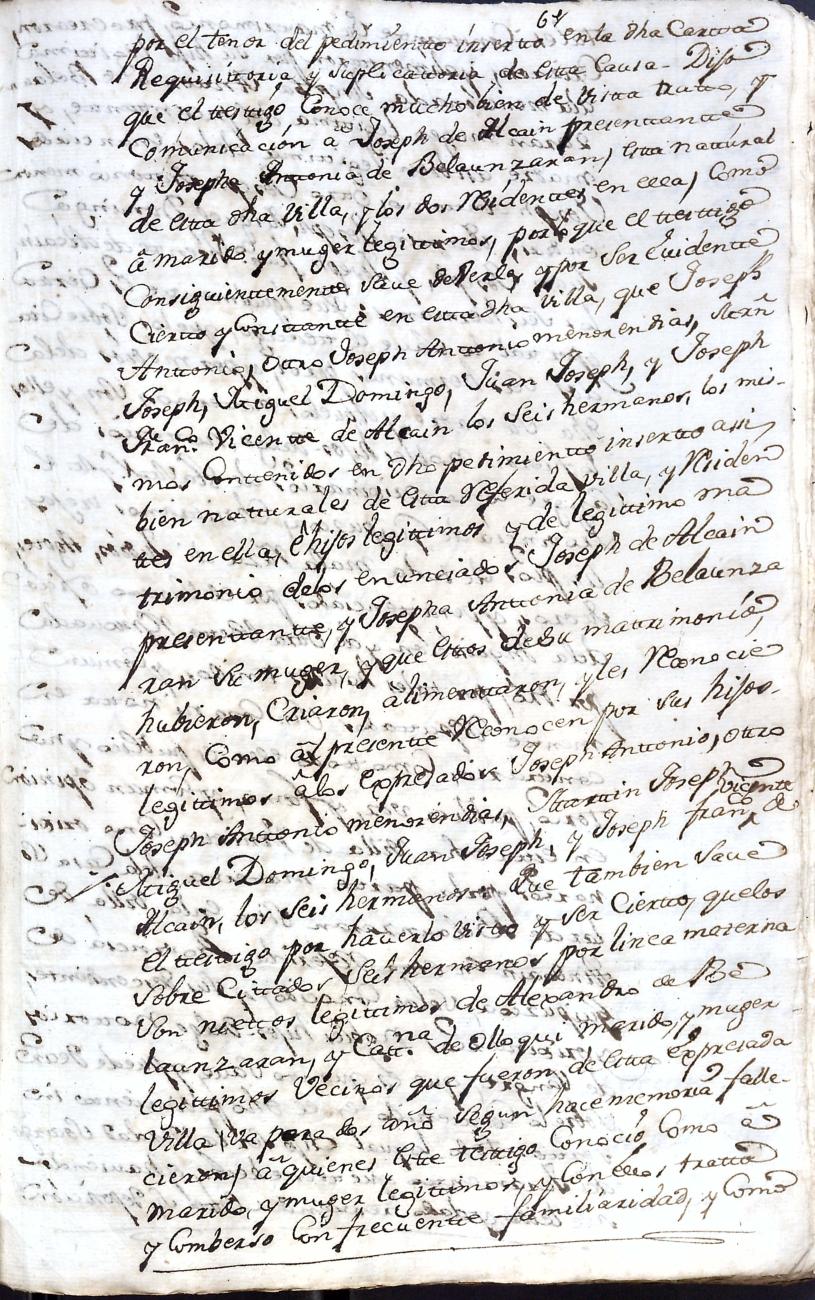 64
por el tenor del pedimientto insertto en la dha Cartta
Requisittoria y suplicattoria de estta Causa - Dijo
que el ttesttigo Conoce mucho bien de vistta tratto, y
Comunicación a Joseph de Alcain presenttantte
y Josepha Anttonia de Belaunzaran, estta natural
de estta dha Villa, y los dos Residenttes en ella, Como
â marido y muger legittimos, por que el ttesttigo
Consiguienttementte save de Verlo, y por ser Evidentte
Ciertto y Consttantte en estta dha Villa, que Joseph
Anttonio, otro Joseph Anttonio menor en dias, Marñ
Joseph, Miguel Domingo, Juan Joseph, y Joseph
Franco. Vicentte de Alcain los seis hermanos, los mis-
mos Conttenidos en dho pedimientto insertto assi
bien natturales de estta Referida Villa, y Residen
ttes en ella, è hijos legittimos y de legittimo ma
trimonio de los enunciados Joseph de Alcain
presenttantte, y Josepha Anttonia de Belaunza
ran su muger, y que esttos de su mattrimonio,
hubieron, Criaron, alimenttaron, y les Reconocie
ron, Como al presentte Reconocen por sus hijos
legittimos â los expresados Joseph Anttonio, otro
Joseph Anttonio menor en dias, Marttin Joseph,
Miguel Domingo, Juan Joseph, y Joseph franco. Vicente de
Alcain, los seis hermanos. Que tambien save
el ttesttigo por haverlo vistto y ser Ciertto, que los
sobre Cittados seis hermanos por linea materna
son niettos legittimos de Alexandro de Be
launzaran, y Catt.na de Olloqui marido, y muger
legittimos Vecinos que fueron de estta expresada
Villa, va para dos año segun hace memoria falle-
cieron, â quienes este testtigo Conoció Como â
marido, y muger legittimos, y Con ellos tratto
y Comberso Con frecuentte familiaridad, y Como